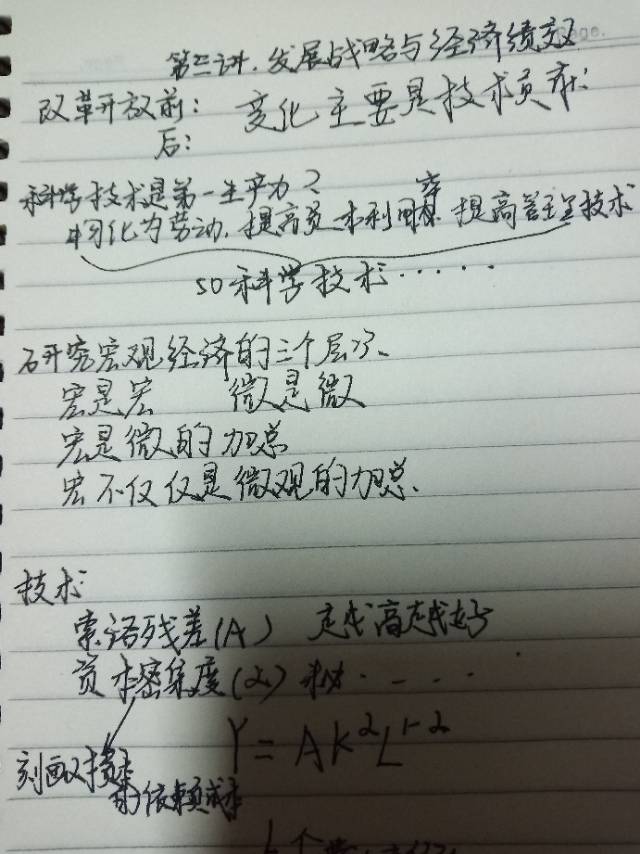 第三讲.发展战略与经济绩效
改革开放前: 变化主要是技术贡献
后:
科学技术是第一生产力?
物化为劳动.提高资本利用率 提高管理技术
so科学技术······
研究宏观经济的三个层次、
宏是宏 微是微
宏是微的加总
宏不仅仅是微观的加总.
技术
索洛残差(A) 越高越好
资本密集度(α)
Y=AK^αL^1-α
刻画对资本
的依赖